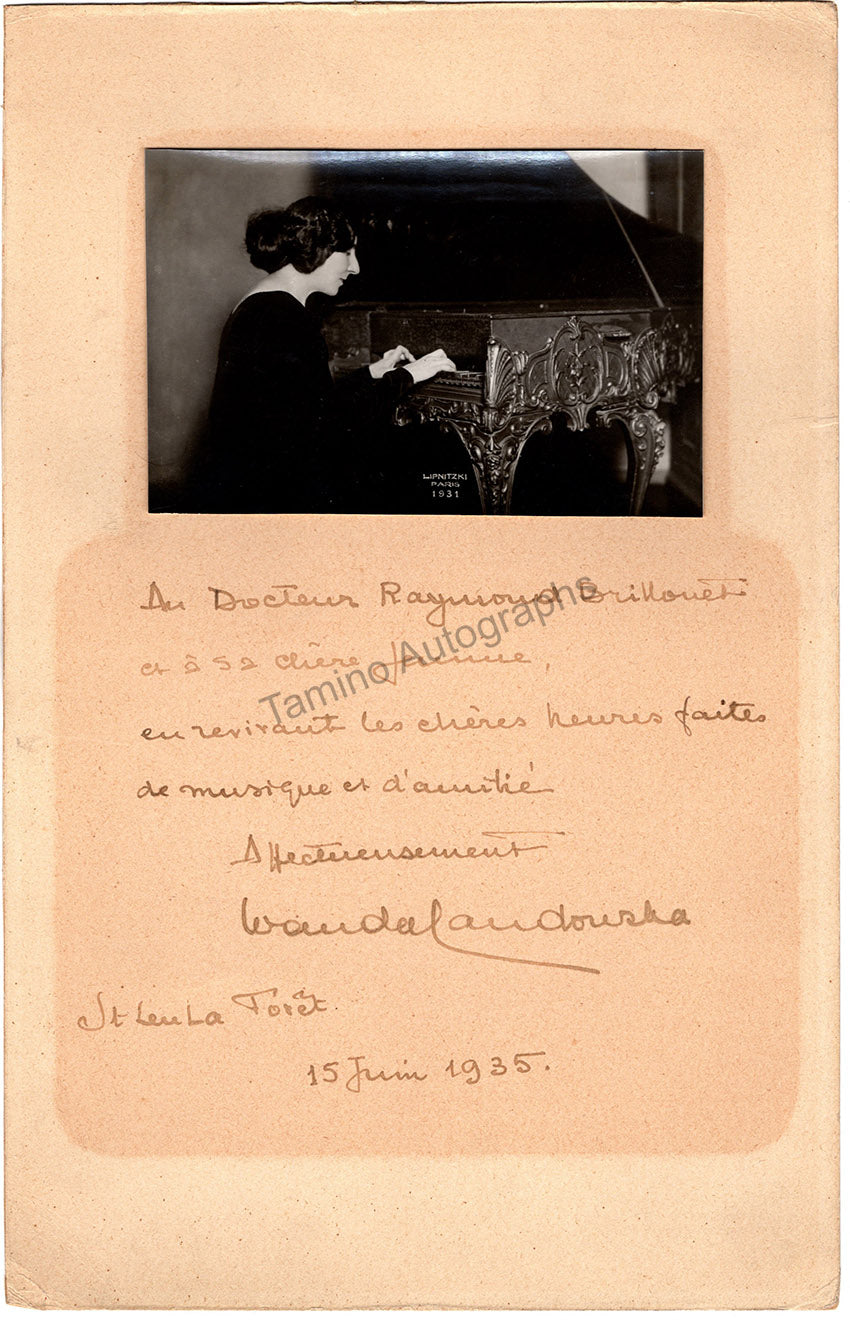 LIPNITZKI
PARIS
1931
Au Docteur Raymond Brillouët
et à sa chère femme,
en revivant les chères heures faites
de musique et d'amitié
Affectueusement
Wanda Landowska
St Leu La Forêt.
15 Juin 1935.
Tamino Autographs